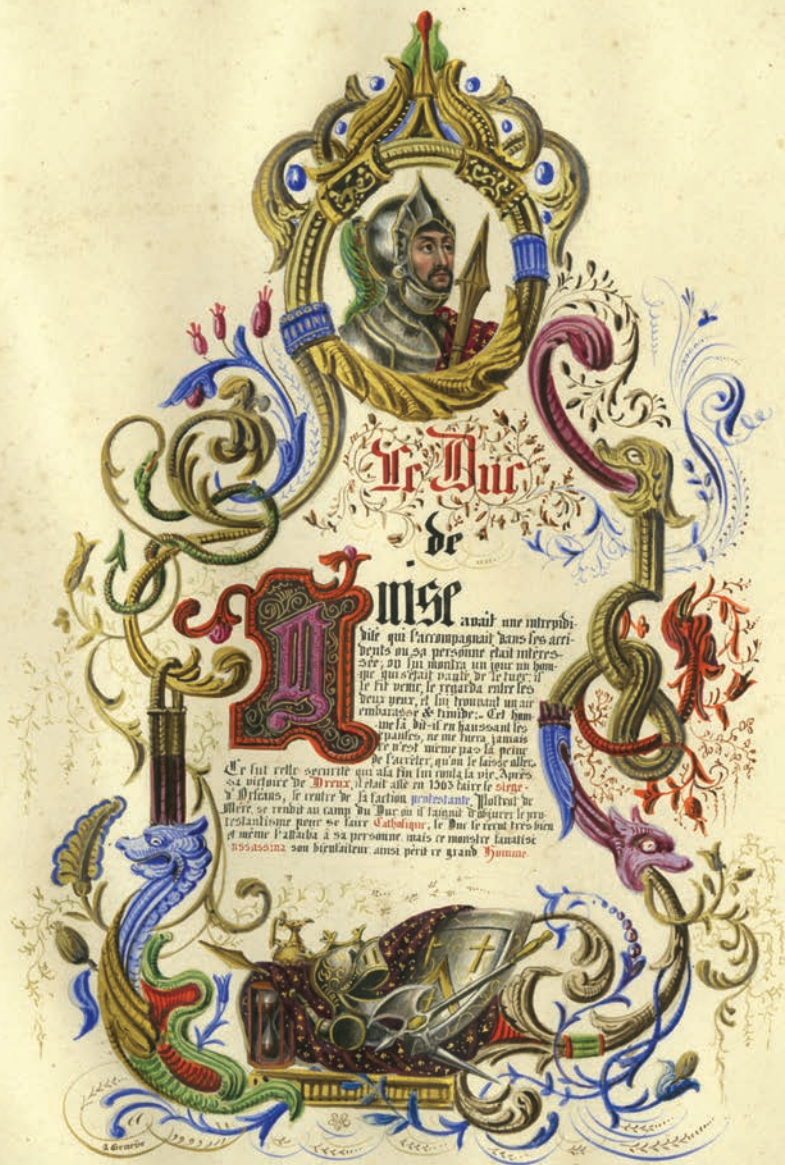 Le Duc
de
Guise avait une intrepidi-
dité qui l'accompagnait dans les acci-
dents ou sa personne était intéres-
sée; on lui montra un jour un hom-
me qui s'était vanté de le tuer; il
le fit venir, le regarda entre les
deux yeux, et lui trouvant un air
embarassé & timide:- Cet hom-
me là, dit-il en haussant les
épaules, ne me tuera jamais
ce n'est même pas la peine
de l'arrêter, qu'on le laisse aller.
Ce fut cette securité qui a la fin lui couta la vie. Après
sa victoire de Dreux, il était allé en 1563 faire le siège-
d'Orléans, le centre de la faction protestante, Poltrot de
Méré, se rendit au camp du Duc ou il faignit d'abjurer le pro-
testantisme pour se faire Catholique, le Duc le recut très bien
et même l'attacha à sa personne, mais ce monstre fanatisé
assassina son bienfaiteur ainsi périt ce grand Homme.